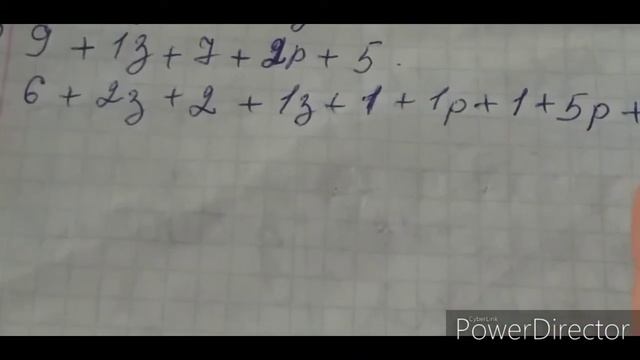 9 + 1з + 7 + 2р + 5.
6 + 2з + 2 + 1з + 1 + 1р + 1 + 5р +
CyberLink
PowerDirector